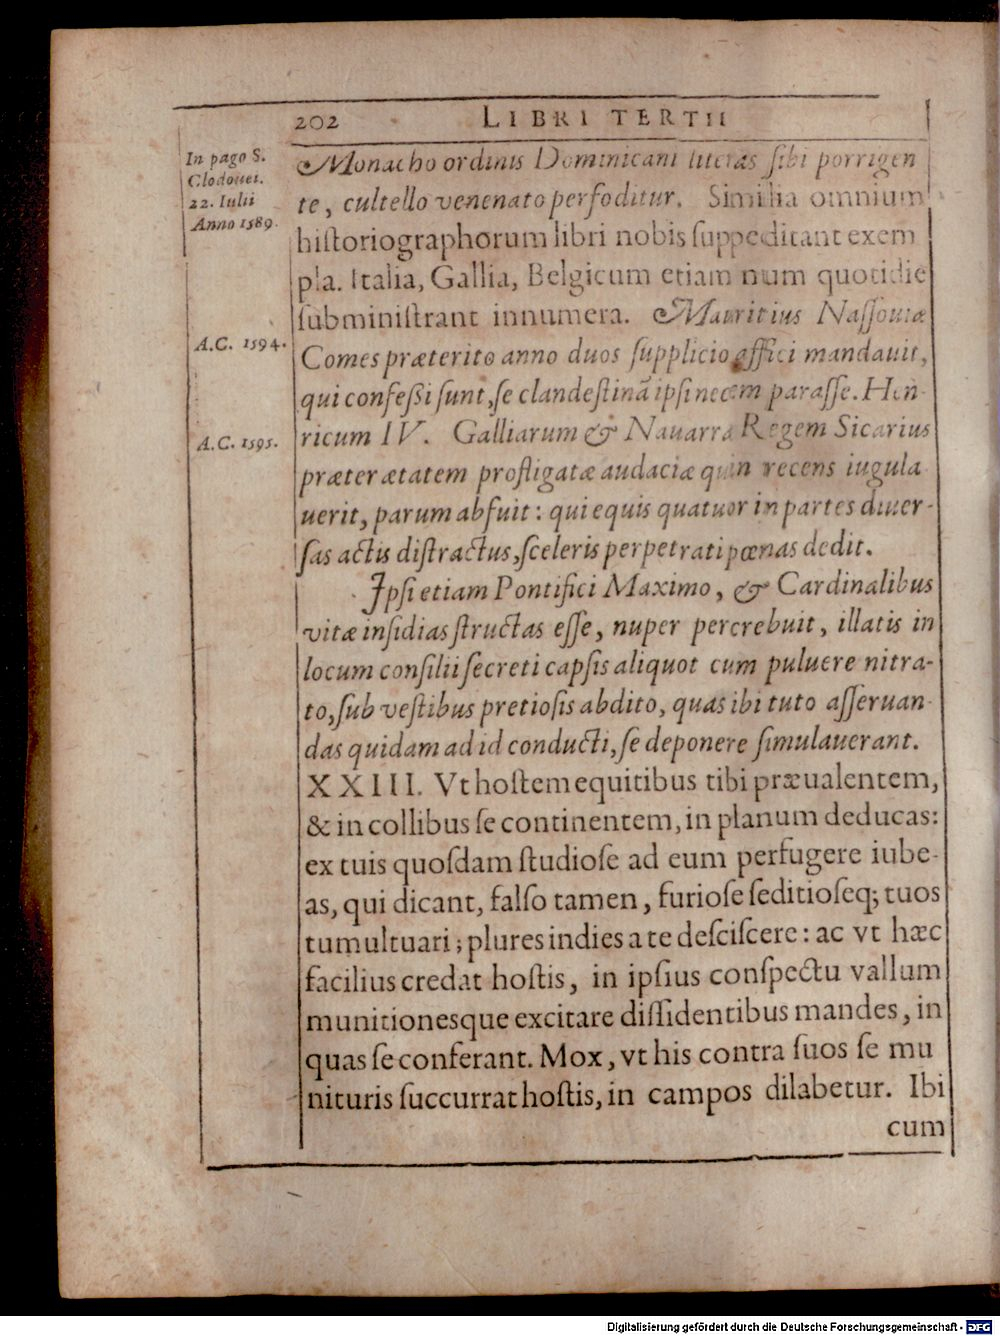 202 LIBRI TERTII
In pago S.
Clodouei.
22. Iulii
Anno 1589.
Monacho ordinis Dominicani literas ſibi porrigen
te, cultello venenato perfoditur. Similia omnium
hiſtoriographorum libri nobis ſuppeditant exem
pla. Italia, Gallia, Belgicum etiam num quotidie
ſubminiſtrant innumera. Mauritius Naſſouiæ
A.C. 1594.
Comes præterito anno duos ſupplicio affici mandauit,
qui confeſſi ſunt, ſe clandeſtinã ipſi necem paraſſe. Hen-
ricum IV. Galliarum & Nauarra Regem Sicarius
A.C. 1595.
præter ætatem profligatæ audaciæ quin recens iugula
uerit, parum abfuit: qui equis quatuor in partes diuer-
ſas actis diſtractus, ſceleris perpetrati pœnas dedit.
Ipſi etiam Pontifici Maximo, & Cardinalibus
vitæ inſidias ſtructas eſſe, nuper percrebuit, illatis in
locum conſilii ſecreti capſis aliquot cum puluere nitra-
to, ſub veſtibus pretioſis abdito, quas ibi tuto aſſeruan-
das quidam ad id conducti, ſe deponere ſimulauerant.
XXIII. Vt hoſtem equitibus tibi præualentem,
& in collibus ſe continentem, in planum deducas:
ex tuis quoſdam ſtudioſe ad eum perfugere iube-
as, qui dicant, falſo tamen, furioſe ſeditioſeq; tuos
tumultuari; plures indies a te deſciſcere: ac vt hæc
facilius credat hoſtis, in ipſius conſpectu vallum
munitionesque excitare diſſidentibus mandes, in
quas ſe conferant. Mox, vt his contra ſuos ſe mu
nituris ſuccurrat hoſtis, in campos dilabetur. Ibi
cum
Digitalisierung gefördert durch die Deutsche Forschungsgemeinschaft - DFG